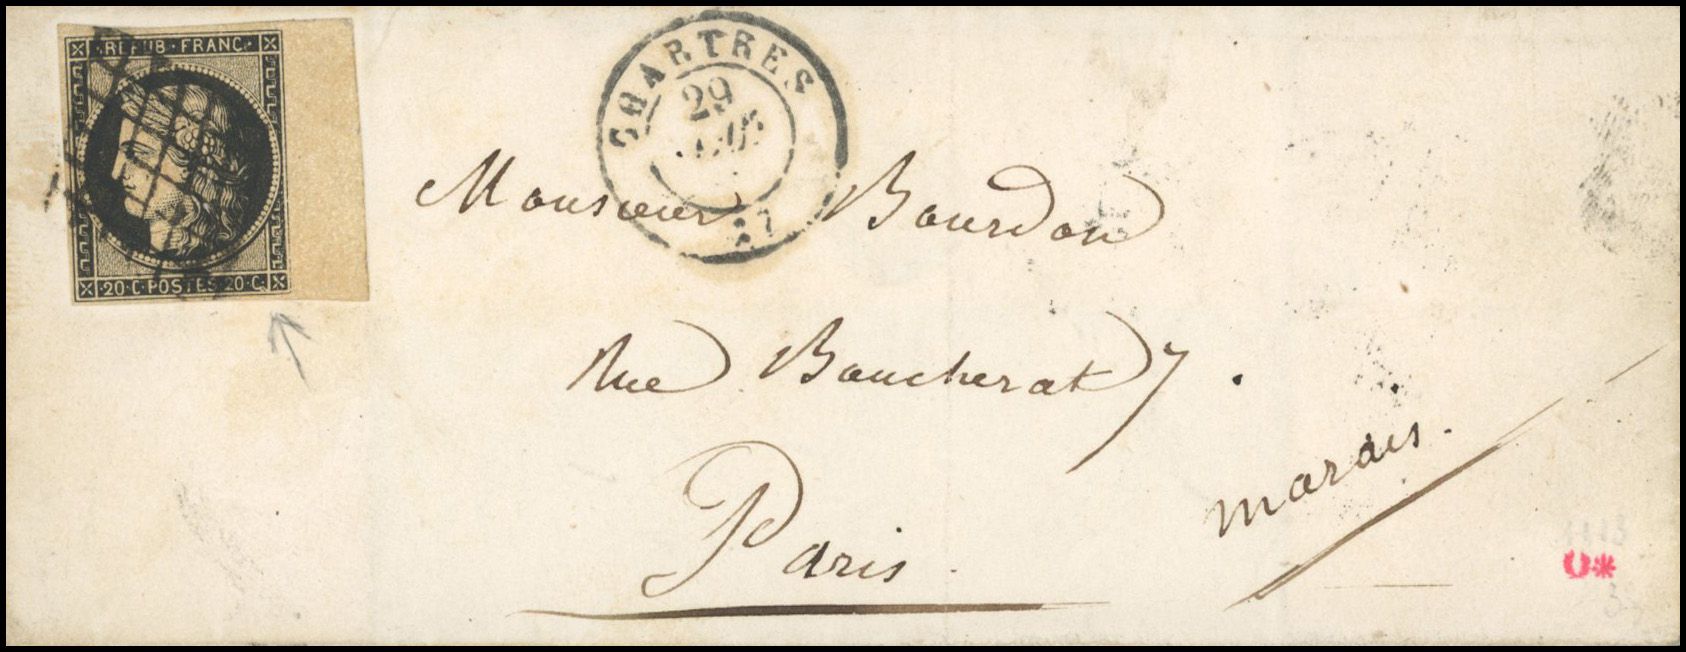 REPUB · FRANC ·
20 · C · POSTES · 20 · C ·
CHARTRES
29
27
Monsieur Bourdon
Rue Boucherat 7.
Paris.
marais.
1113